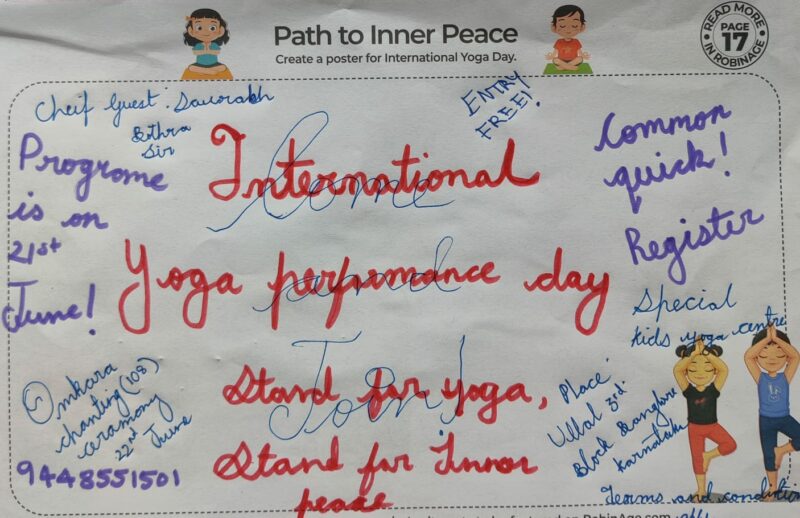 Path to Inner Peace
Create a poster for International Yoga Day.
READ MORE
PAGE
17
IN ROBINAGE
Cheif Guest. Saurabh
Bothra
Sir
ENTRY
FREE!
Programe
is on
21st
June!
International
Yoga perfumance day
Come
and
Join!
Common
quick!
Register
Special
kids yoga centre
Stand for yoga,
Stand for Innor
peace
Omkara
chanting (108)
ceremony
22nd June
9448551501
Place
Ullal 3rd
Block Banglore
Karnataka
Terms and condition